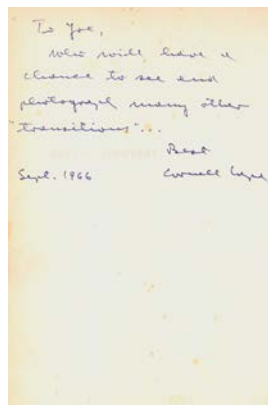 To Joe,
who will have a
chance to see and
photograph many other
"transitions"...
Best
Sept. 1966 Cornell Capa